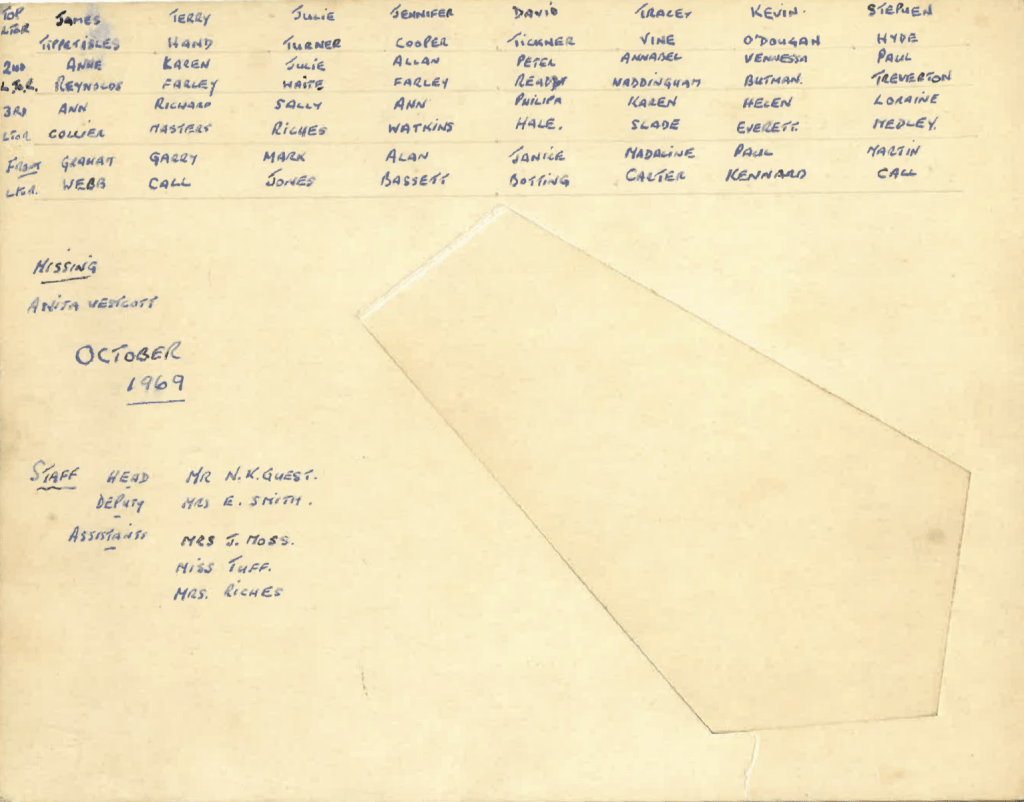 TOP JAMES TERRY JULIE JENNIFER DAVID TRACEY KEVIN. STEPHEN
LTOR TIPPETISLES HAND TURNER COOPER TICKNER VINE O'DOUGAN HYDE
2ND ANNE KAREN JULIE ALLAN PETER ANNABEL VENNESSA PAUL
L.TO.R. REYNOLDS FARLEY WAITE FARLEY READ WADDINGHAM BUTMAN. TREVERTON
3RD ANN RICHARD SALLY ANN PHILIPA KAREN HELEN LORAINE
LTOR COLLIER MASTERS RICHES WATKINS HALE. SLADE EVERETT MEDLEY.
FRONT GRAHAM GARRY MARK ALAN JANICE MADALINE PAUL MARTIN
LTOR. WEBB CALL JONES BASSETT BOTTING CARTER KENNARD CALL
MISSING
ANITA WESTCOTT
OCTOBER
1969
STAFF HEAD MR N.K.GUEST.
DEPUTY MRS E. SMITH.
ASSISTANTS MRS J. MOSS.
MISS TUFF.
MRS. RICHES